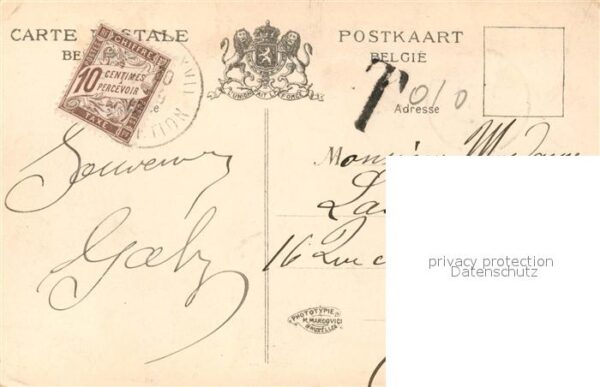 CARTE POSTALE
POSTKAART
BELGIË
CHIFFRE
10 CENTIMES
A PERCEVOIR
TAXE
L'UNION FAIT LA FORCE
T 0/0
Adresse
Souvenir
Gaby
Monsieur
16 Rue
PHOTOTYPIE
H. MARCOVICI
BRUXELLES
privacy protection
Datenschutz